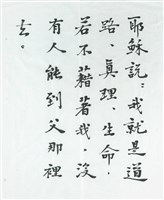 耶穌說：我就是道
路、真理、生命．
若不藉著我，沒
有人能到父那裡
去．